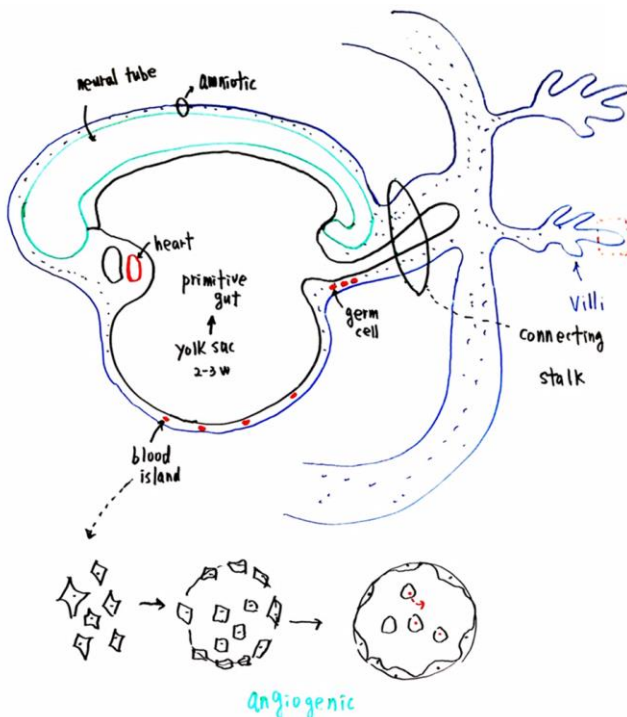 neural tube
amniotic
heart
primitive
gut
yolk sac
2-3 w
germ
cell
Villi
connecting
stalk
blood
island
angiogenic